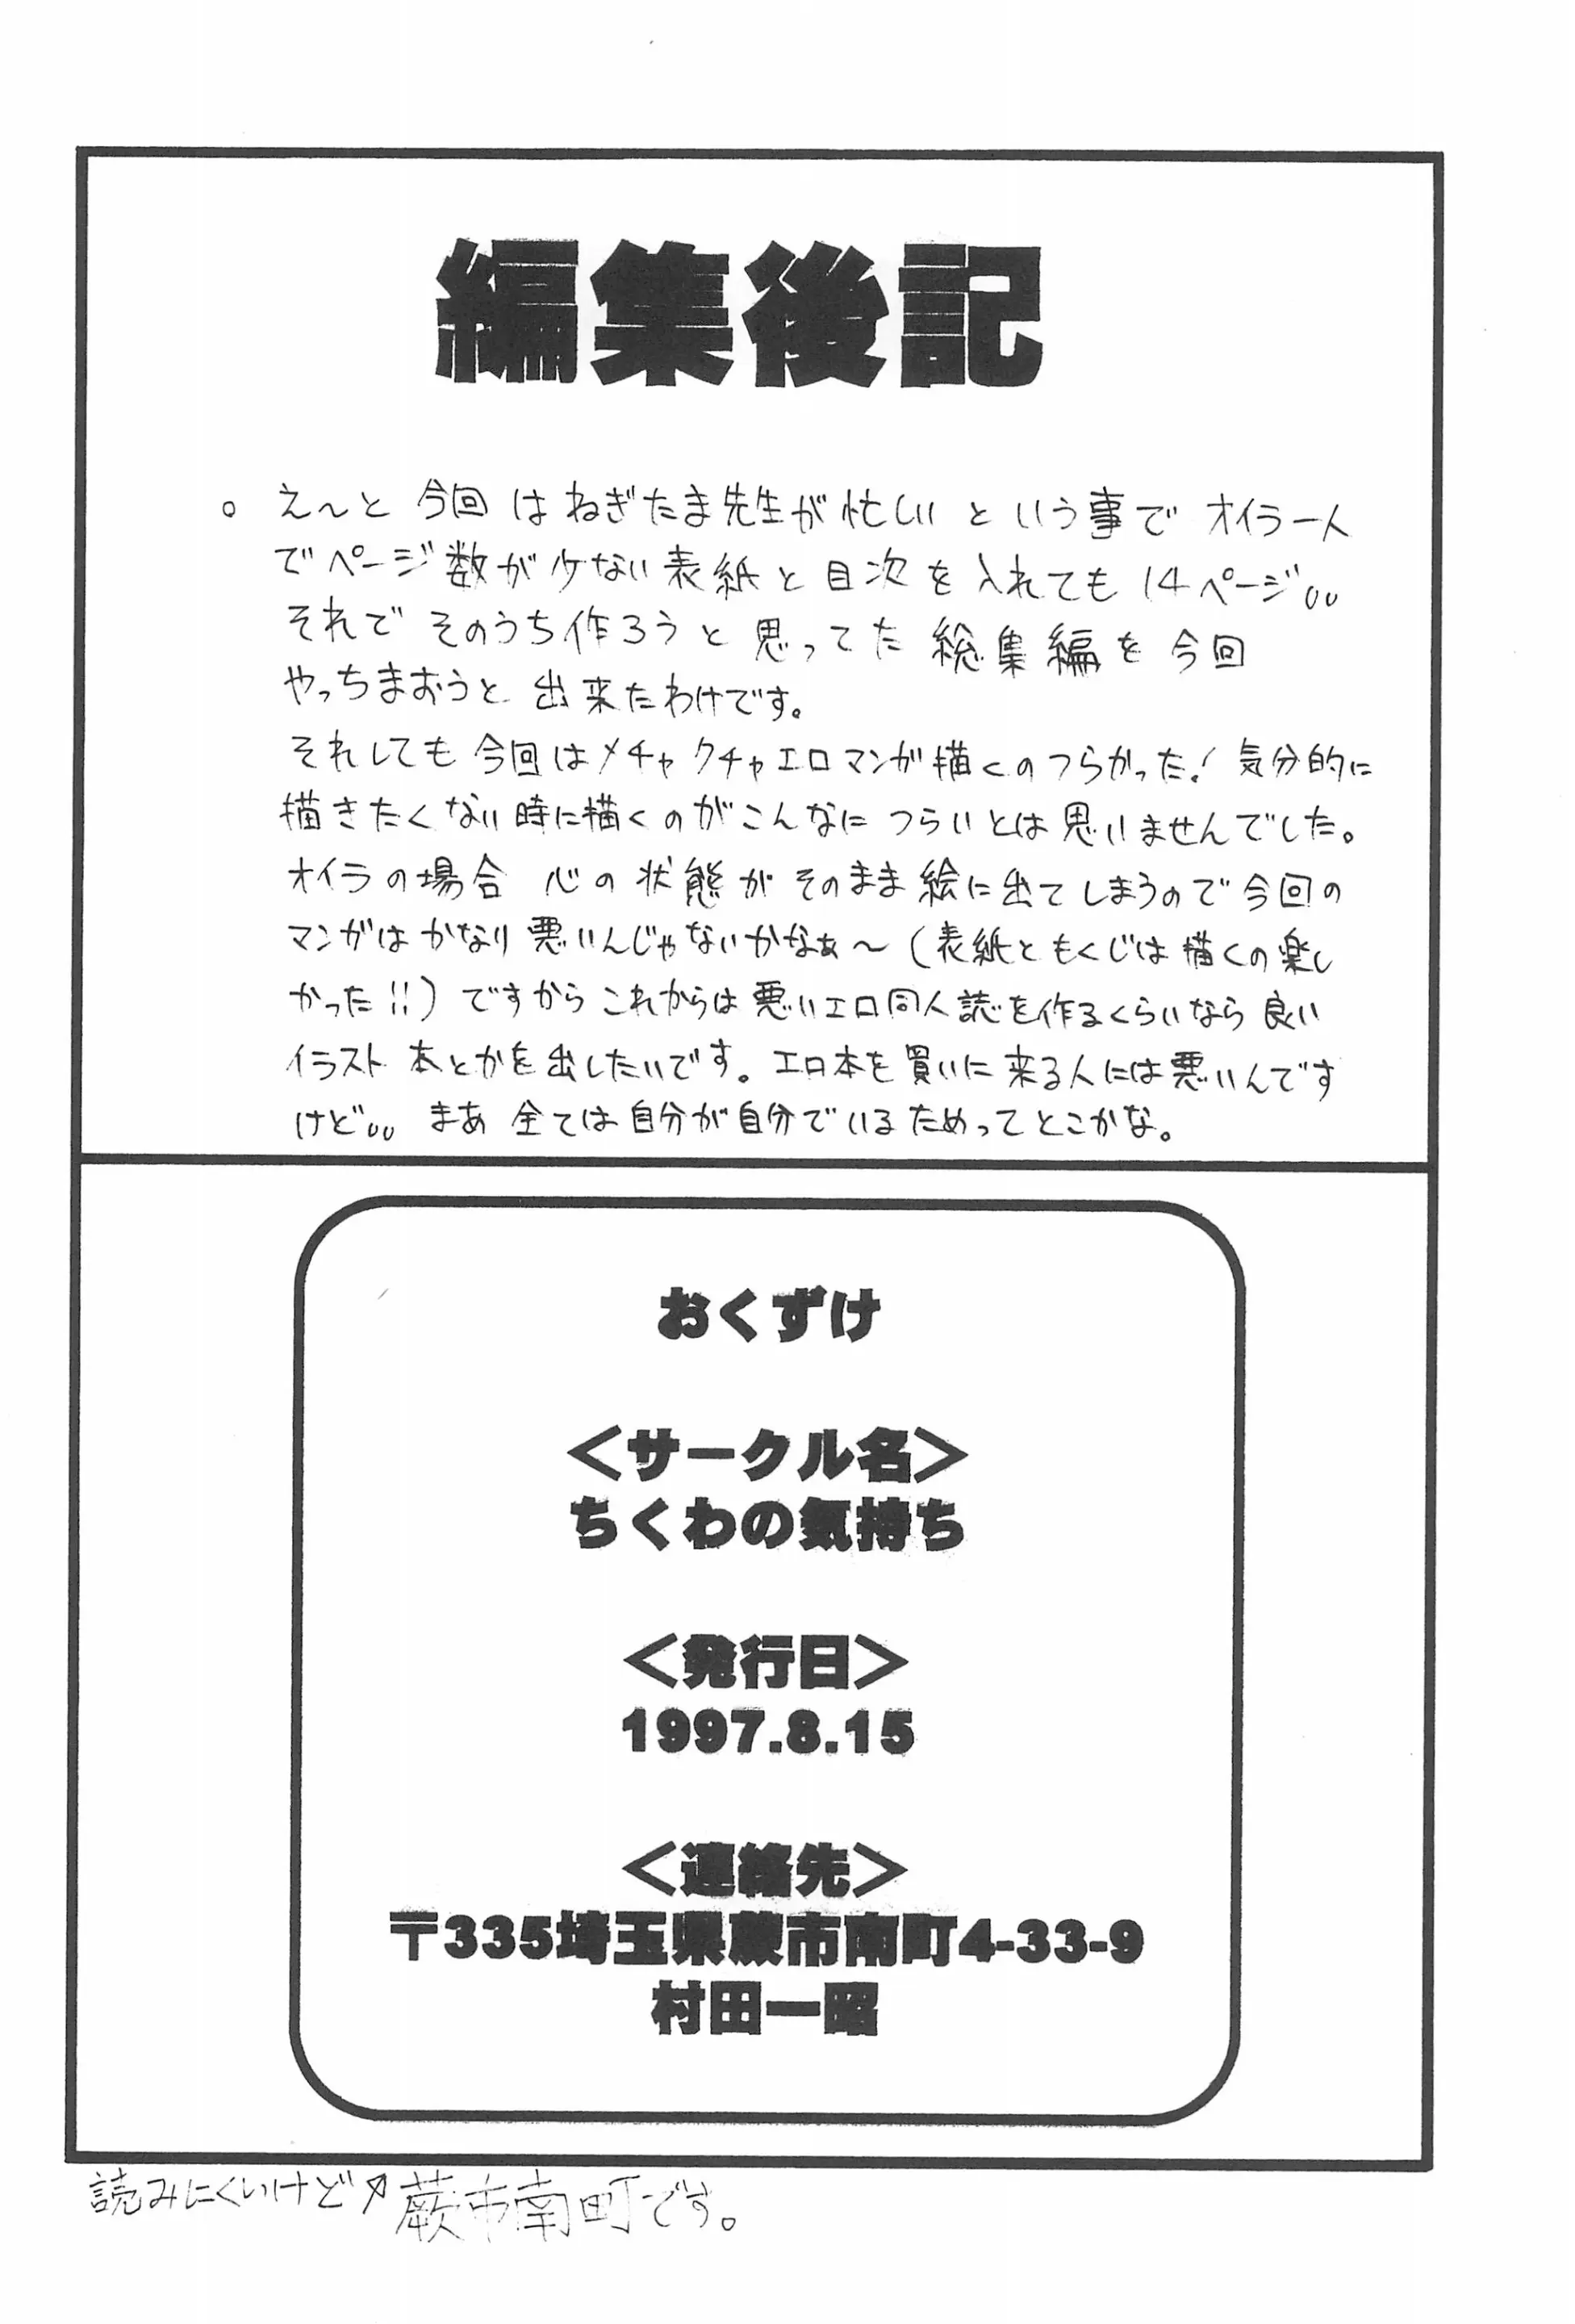 編集後記
。え〜と 今回 はねぎたま先生が忙しい という事で オイラ一人
でページ数が少ない表紙と目次を入れても 14ページ。。
それで そのうち作ろうと思ってた 総集編を今回
やっちまおうと 出来たわけです。
それしても 今回はメチャクチャエロマンが描くのつらかった! 気分的に
描きたくない時に描くのがこんなに つらいとは思いませんでした。
オイラの場合 心の状態が そのまま絵に出てしまうので今回の
マンガは かなり悪いんじゃないかなぁ〜(表紙ともくじは描くの楽し
かった!!)ですから これからは悪いエロ同人誌を作るくらいなら 良い
イラスト 本とかを出したいです。エロ本を買いに来る人には悪いんです
けど。。 まあ 全ては自分が自分でいるためってとこかな。
おくずけ
<サークル名>
ちくわの気持ち
<発行日>
1997.8.15
<連絡先>
〒335埼玉県蕨市南町4-33-9
村田一昭
読みにくいけど↗蕨市南町です。